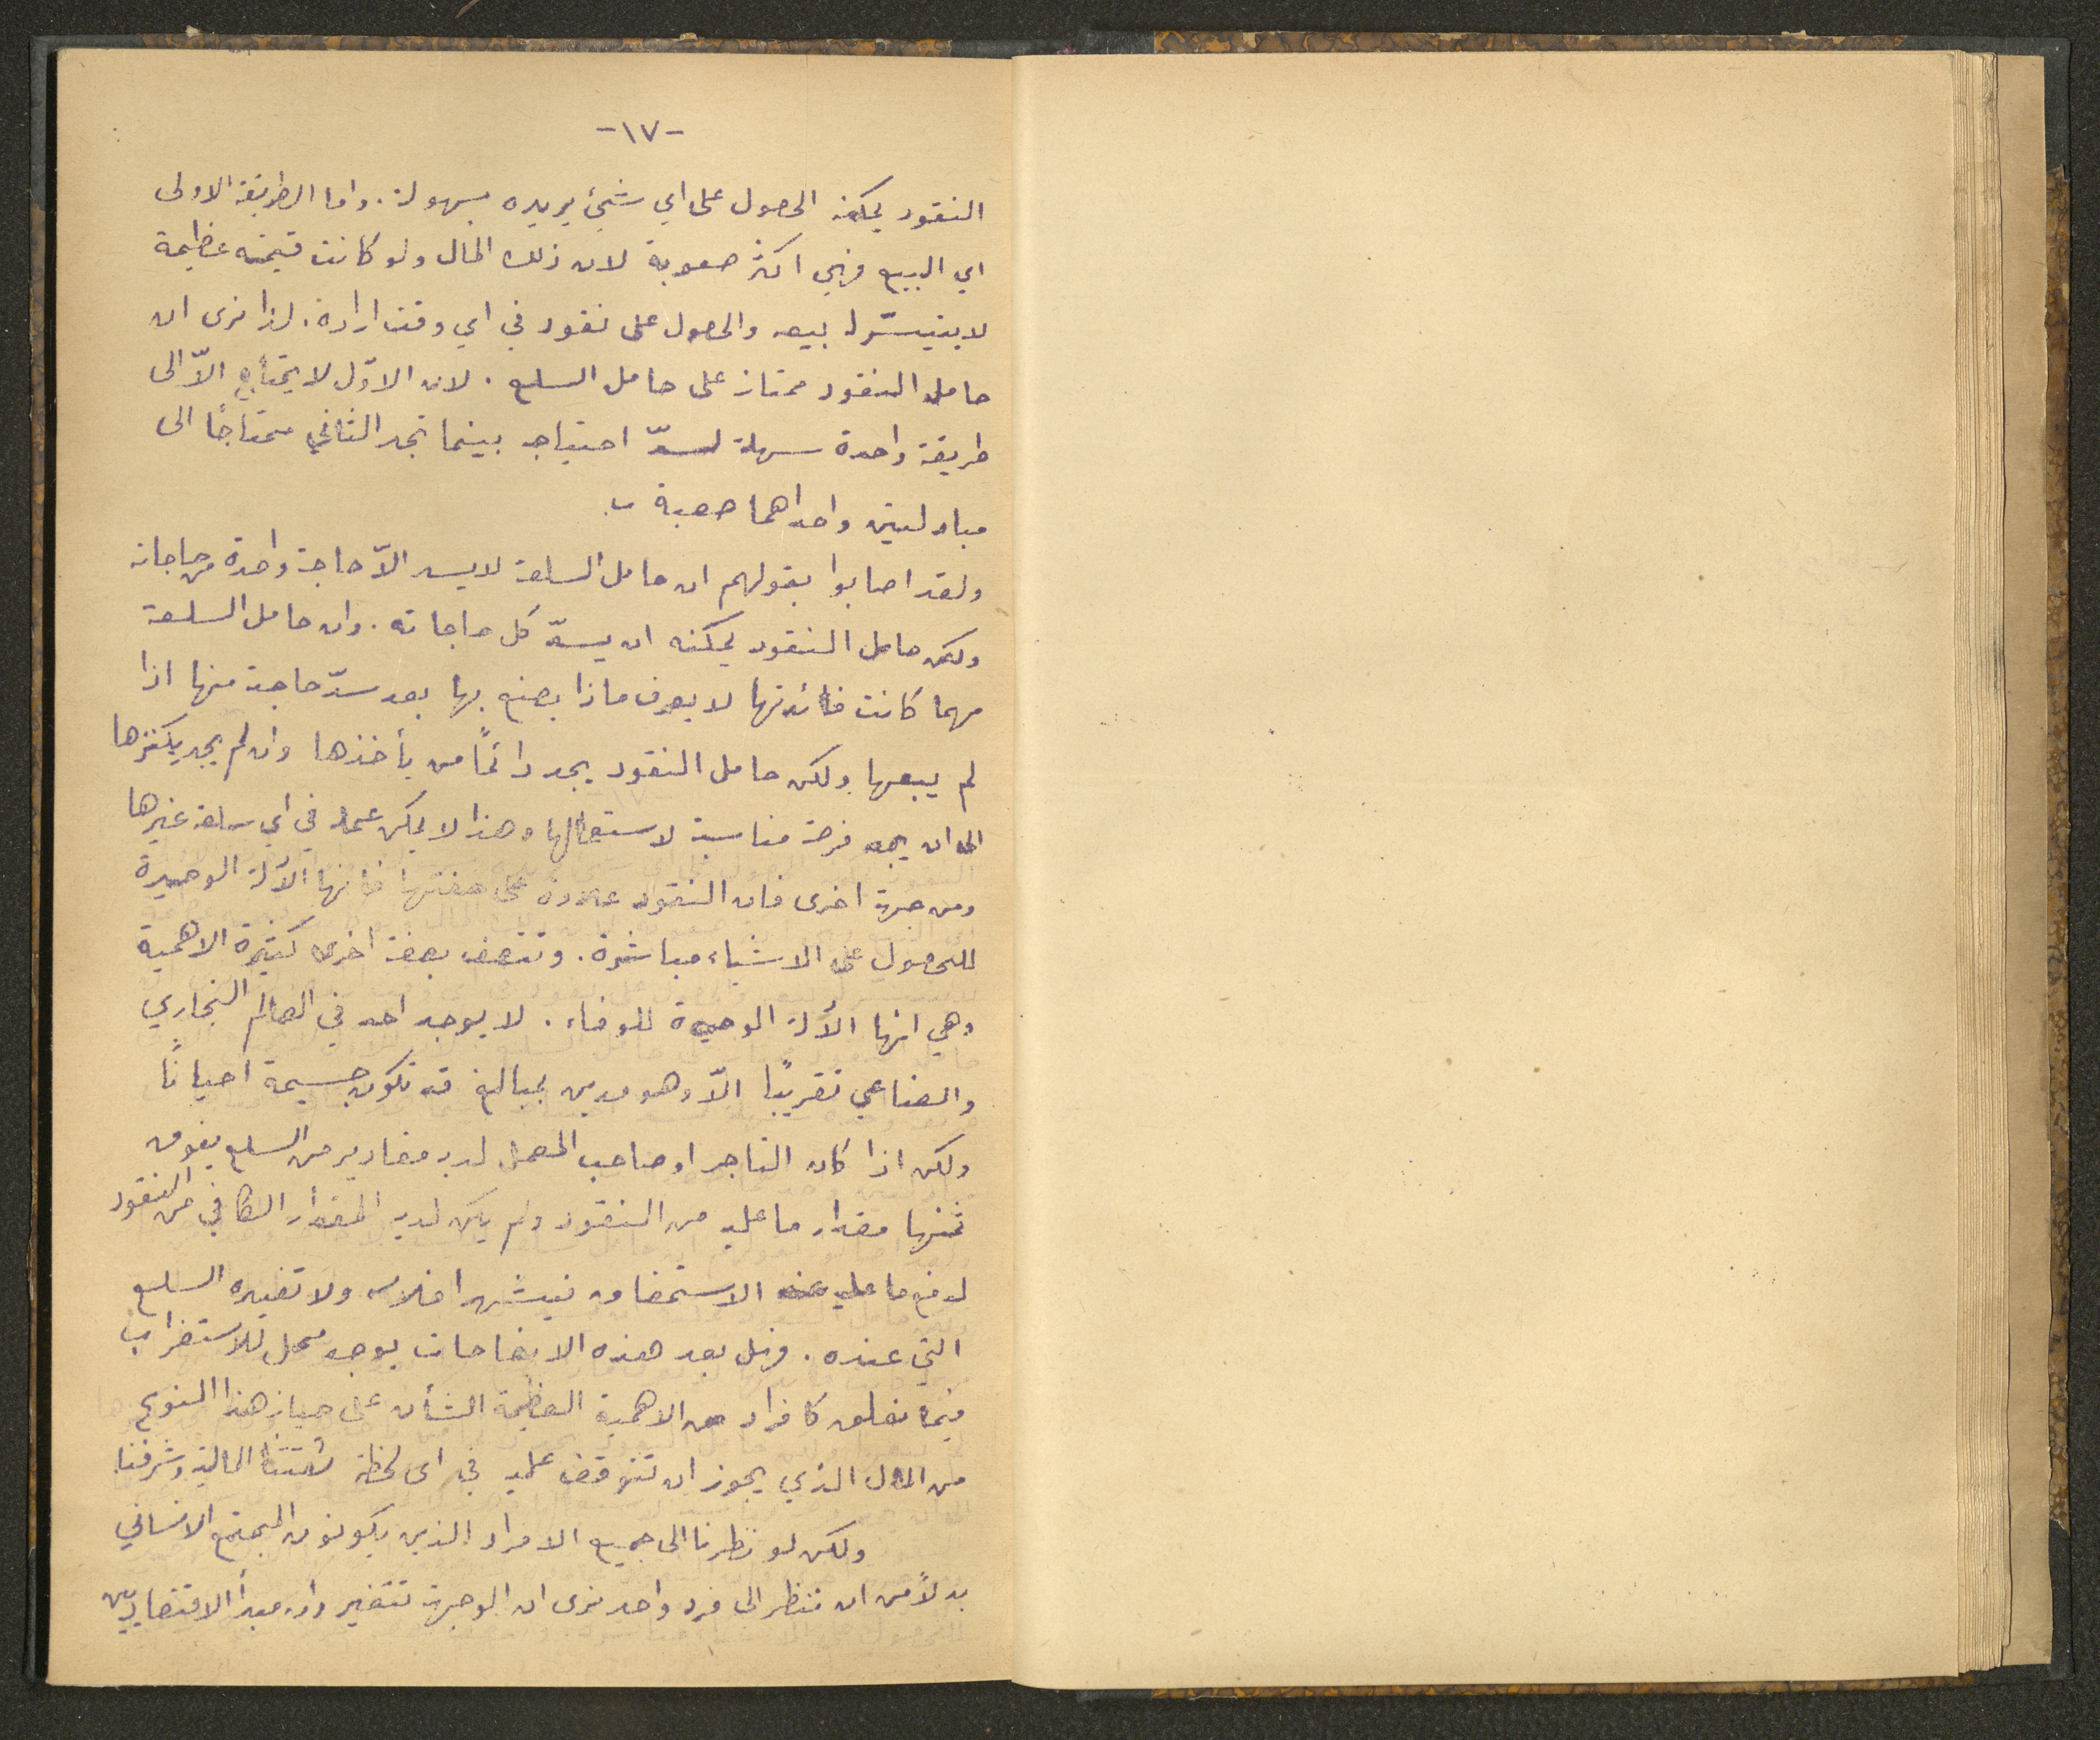 -١٧-
النقود يمكنه الحصول على اي شيئ يريده بسهولة. واما الطريقة الاولى
اي البيع فهي اكثر صعوبة لان ذلك المال ولو كانت قيمته عظيمة
لا يتيسّر له بيعه والحصول على نقود في اي وقت اراده. لذا نرى ان
حامل النقود ممتاز على حامل السلع. لان الاوّل لا يحتاج الاّ الى
طريقة واحدة سهلة لسدّ احتياجه بينما تجد الثاني محتاجًا الى
مبادلتين واحداهما صعبة
ولقد اصابوا بقولهم ان حامل السلعة لا يسد الاّ حاجة واحدة من حاجاته
ولكن حامل النقود يمكنه ان يسدّ كل حاجاته. وان حامل السلعة
مهما كانت فائدتها لا يعرف ماذا يصنع بها بعد سدّ حاجة منها اذا
لم يبعها ولكن حامل النقود يجد دائمًا من يأخذها وان لم يجد يكنزها
الى ان يجد فرصة مناسبة لاستعمالها وهذا لا يمكن عمله في اي سلعة غيرها
ومن جهة اخرى فان النقود علاوة على صفتها فانها الآلة الوحيدة
للحصول على الاشياء مباشرة. وتتصف بصفة اخرى كثيرة الاهمية
وهي انها الآلة الوحيدة للوفاء. لا يوجد احد في العالم التجاري
والصناعي تقريبًا الاّ وهو مدين بمبالغ قد تكون جسيمة احيانًا
ولكن اذا كان التاجر او صاحب المعمل لديه مقادير من السلع يفوق
ثمنها مقدار ما عليه من النقود ولم يكن لديه المقدار الكافي من النقود
لدفع ما عليه عند الاستحقاق فيشهر افلاسه ولا تفيده السلع
التي عنده. فهل بعد هذه الايضاحات يوجد محل للاستغراب
فيما نعلق كافراد من الاهمية العظيمة الشأن على حياز هذا النوع
من المال الذي يجوز ان تتوقف عليه في اى لحظة ثقتنا المالية وشرفنا
ولكن لو نظرنا الى جميع الافراد الذين يكونون المجتمع الانساني
بدلاً من ان ننظر الى فرد واحد نرى ان الوجهة تتغير وان مبدأ الاقتصاديين